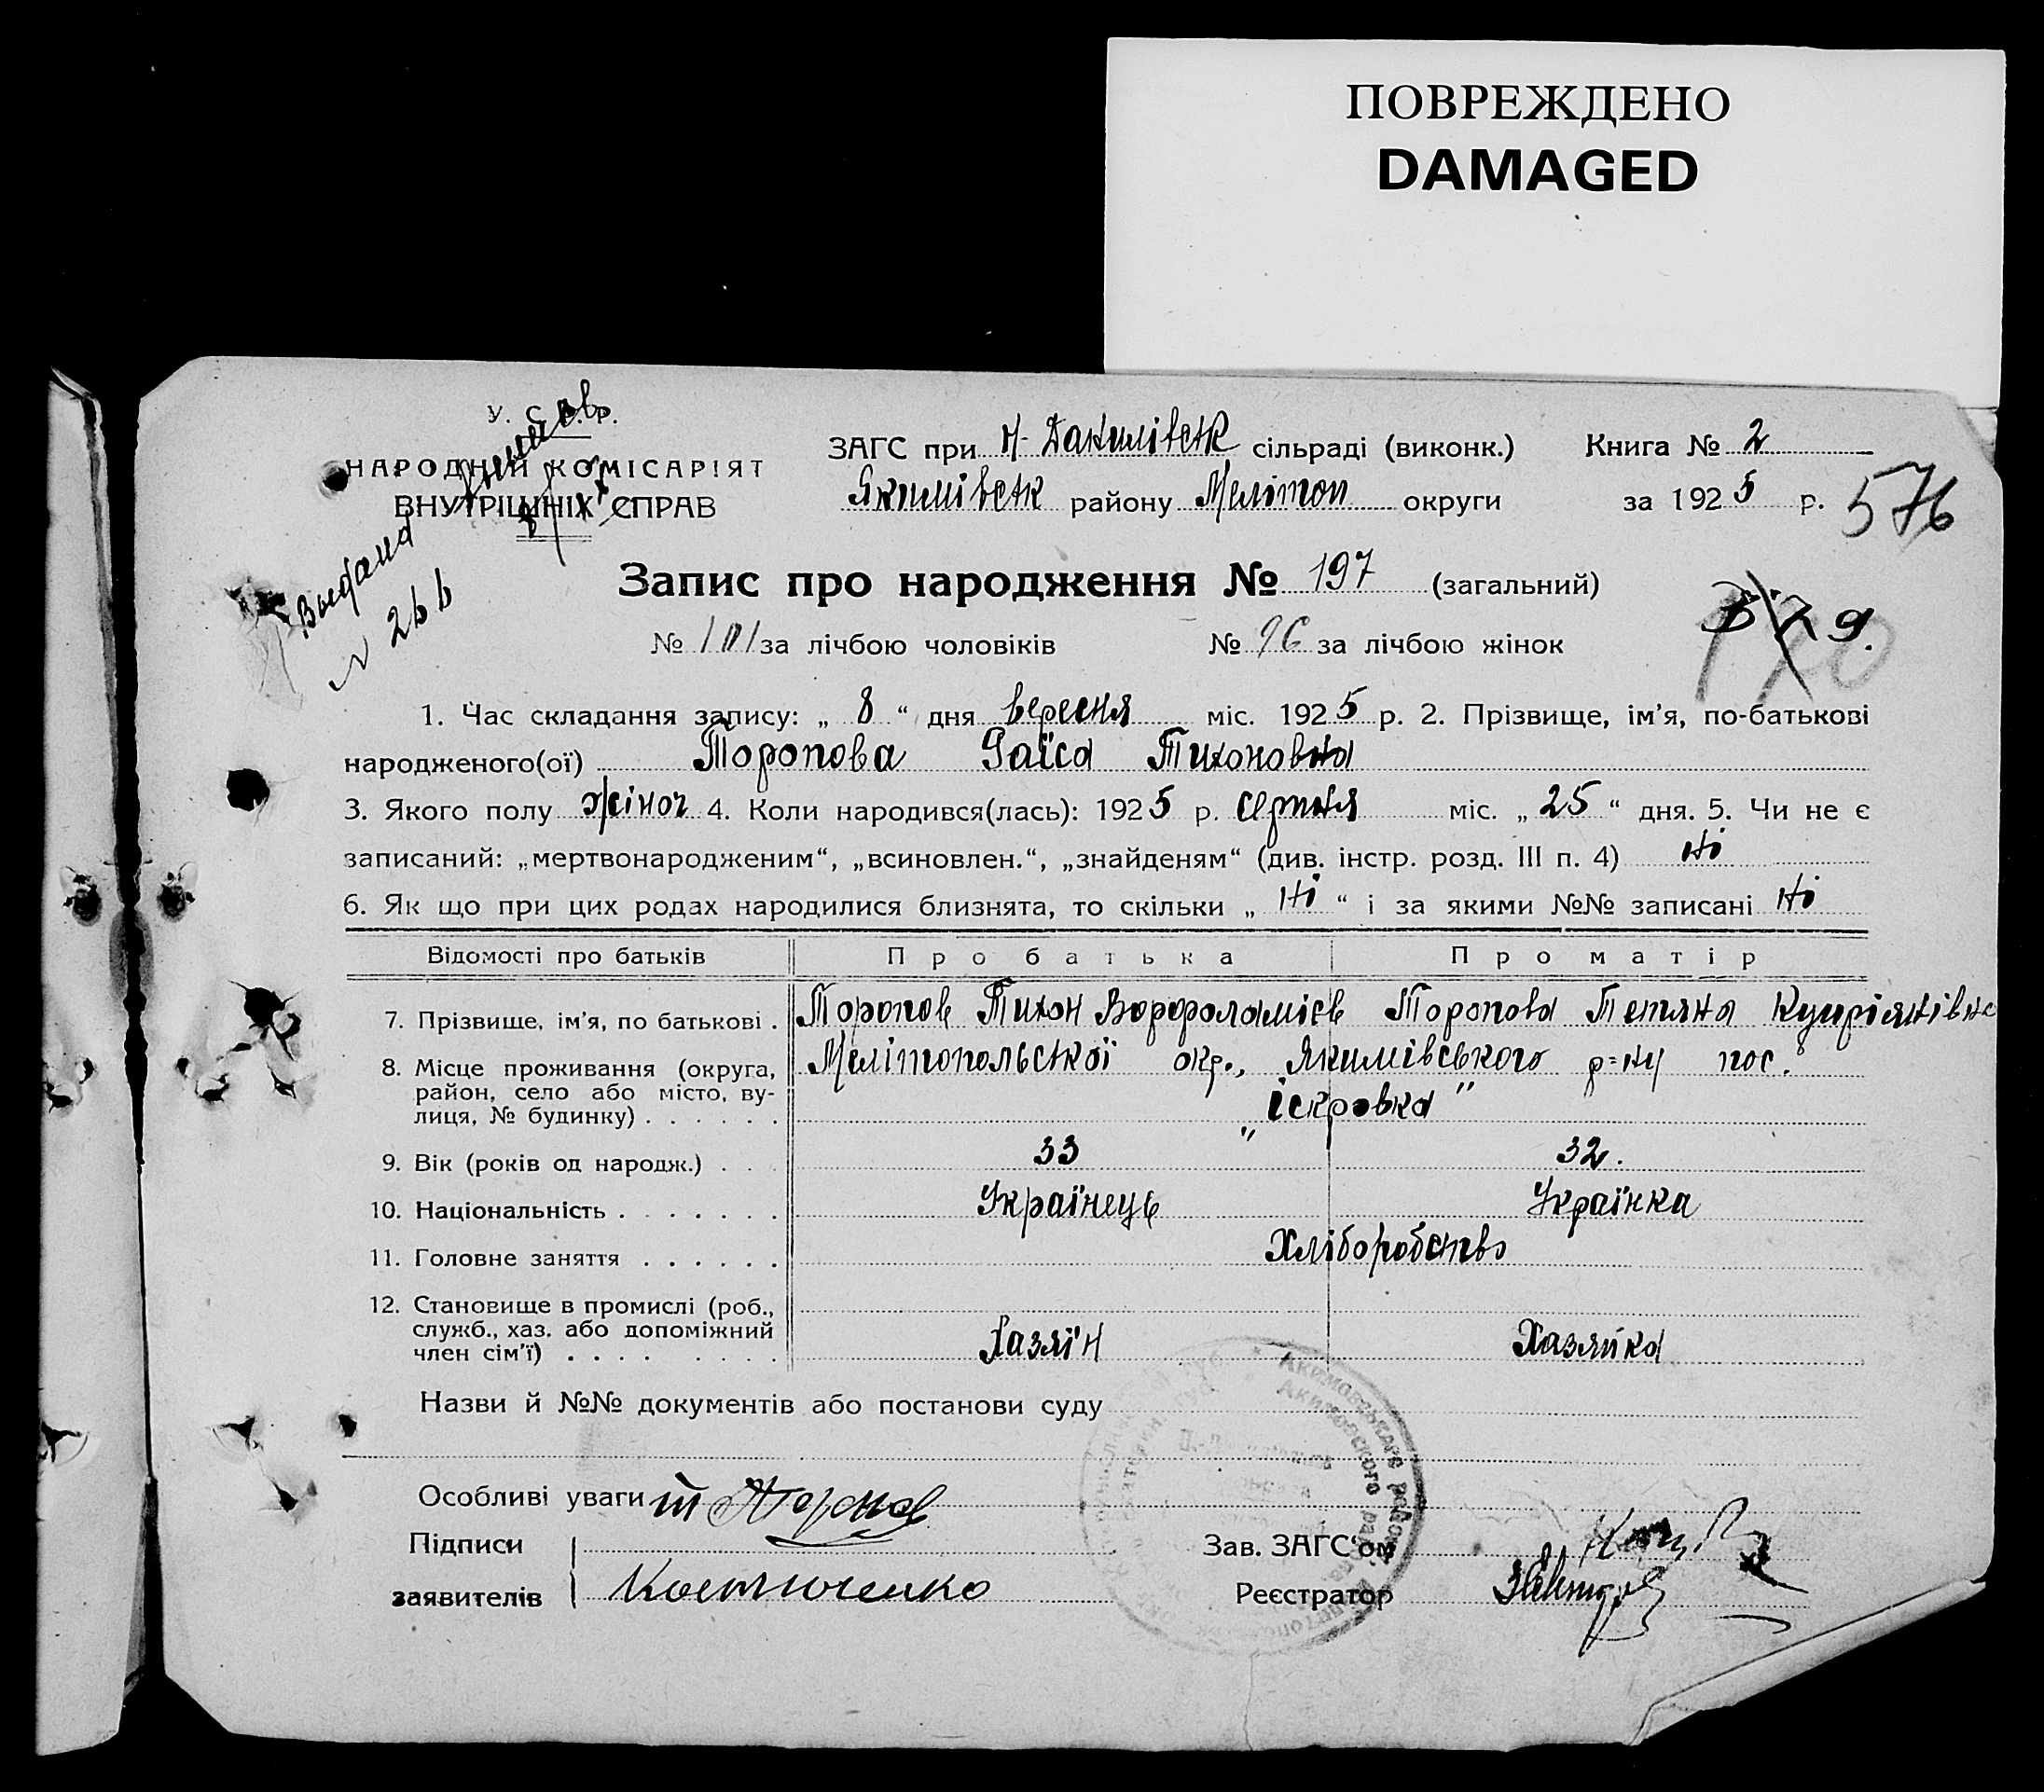 ПОВРЕЖДЕНО
DAMAGED
У. С. Р. Р.
НАРОДНІЙ КОМІСАРІЯТ
ВНУТРІШНІХ СПРАВ
Выдана
N 266
ЗАГС при Н-Данилівськ сільраді (виконк.) Книга № 2
Якимівськ району Мелітоп округи за 1925 р.
576
Запис про народження № 197 (загальний)
№ 101 за лічбою чоловіків № 96 за лічбою жінок
1. Час складання запису: „ 8 “ дня вересня міс. 1925 р. 2. Прізвище, ім’я, по-батькові
народженого(ої) Торопова Раїса Тихоновна
3. Якого полу жіноч 4. Коли народився(лась): 1925 р. серпня міс. „ 25 “ дня. 5. Чи не є
записаний: „мертвонародженим“, „всиновлен.“, „знайденям“ (див. інстр. розд. III п. 4) Ні
6. Як що при цих родах народилися близнята, то скільки „ Ні “ і за якими №№ записані Ні
Відомості про батьків Про батька Про матір
7. Прізвище, ім’я, по батькові . Торопов Тихон Ворфоламієв Торопова Тетяна Купріянівна
8. Місце проживання (округа, Мелітопольської окр., Якимівського р=ну пос.
район, село або місто, ву-
лиця, № будинку) . . . . . . „Іскровка"
9. Вік (років од народж.) . . . 33 32.
10. Національність . . . . . . . Українець Українка
11. Головне заняття . . . . . . Хліборобство
12. Становище в промислі (роб.,
служб., хаз. або допоміжний
член сім’ї) . . . . . . . . Хазяїн Хазяйка
Назви й №№ документів або постанови суду
Особливі уваги
Підписи Зав. ЗАГС‘ом
заявителів Костюченко Реєстратор